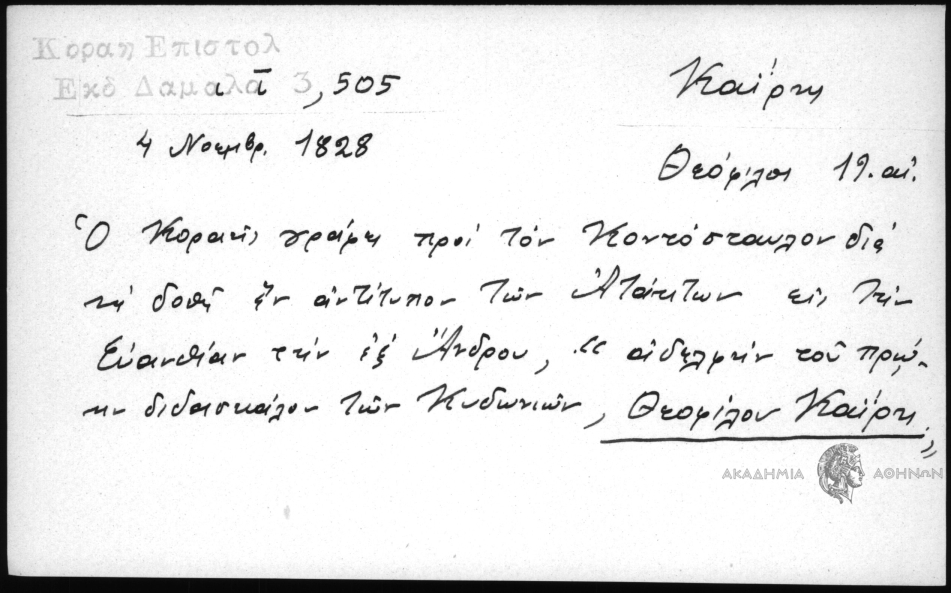 Κοραη Επιστολ
Εκδ Δαμαλά ᾱ 3,505
Καΐρης
4 Νοεμβρ. 1828
Θεόφιλος 19. αἰ.
Ὁ Κοραῆς γράφει πρὸς τὸν Κοντόσταυλον διὰ
νὰ δοθῇ ἓν ἀντίτυπον τῶν Ἀτάκτων εἰς τὴν
Εὐανθίαν τὴν ἐξ Ἄνδρου, "ἀδελφὴν τοῦ πρώ-
ην διδασκάλου τῶν Κυδωνιῶν, Θεοφίλου Καΐρη"
ΑΚΑΔΗΜΙΑ ΑΘΗΝΩΝ